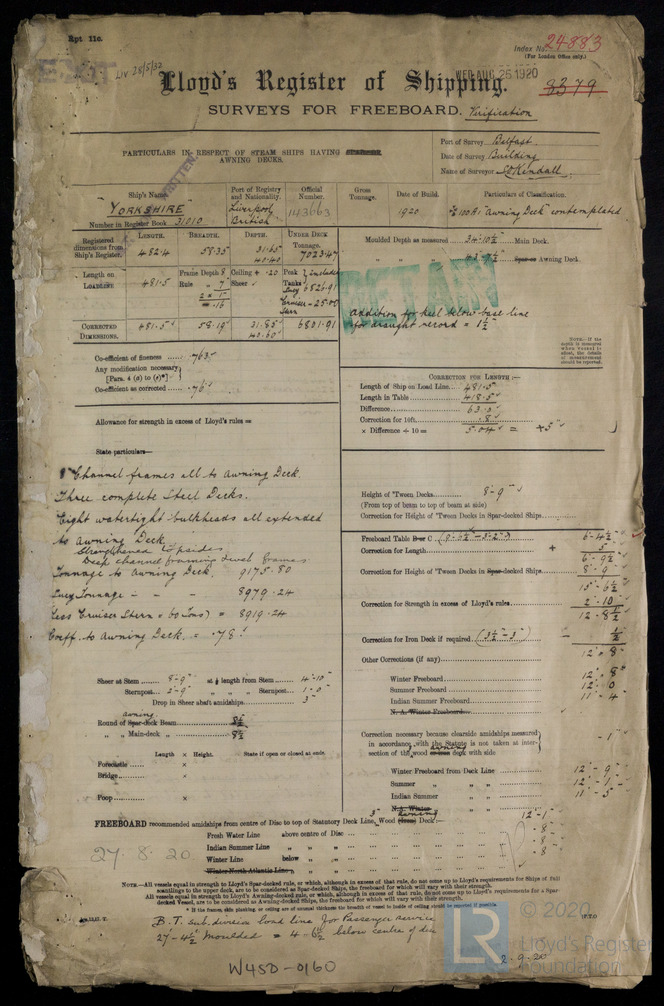 Rpt 11c.
Index No. 24883
(For London Office only.)
LIV 28/5/37
WED. AUG 25 1920
8379
Lloyd's Register of Shipping.
SURVEYS FOR FREEBOARD. Verification
PARTICULARS IN RESPECT OF STEAM SHIPS HAVING
AWNING DECKS.
Port of Survey Belfast
Date of Survey Building
Name of Surveyor
Ship's Name.
"YORKSHIRE"
Number in Register Book 31010
Port of Registry and Nationality.
Liverpool
British
Official Number.
143663
Gross Tonnage.
Date of Build.
1920
Particulars of Classification.
100 A1 "Awning Deck" contemplated
Registered dimensions from Ship's Register.
LENGTH. 482.4
BREADTH. 58.35
DEPTH. 31.65
40.40
UNDER DECK TONNAGE.
7023.47
Length on LOADLINE 481.5
Frame Depth 8
Rule 7
Ceiling + .20
Sheer
Peak Tanks included
6826.91
Cruiser - 25.00
Stern
CORRECTED DIMENSIONS. 481.5 58.19 31.85 6801.91
40.60
Moulded Depth as measured 34.10½ Main Deck.
Awning Deck.
RETAIN
addition for keel below base line
for draught record = 1½
NOTE.-If the depth is measured when vessel is afloat, the details of measurement should be reported.
Co-efficient of fineness .763
Any modification necessary
[Para. 4 (a) to (e)*]
Co-efficient as corrected .76
CORRECTION FOR LENGTH :—
Length of Ship on Load Line 481.5
Length in Table 418.5
Difference 63.0
Correction for 10ft. .8
× Difference ÷ 10 = 5.04 = +5
Allowance for strength in excess of Lloyd's rules =
State particulars—
Channel frames all to Awning Deck.
Three complete Steel Decks.
Eight watertight bulkheads all extended
to Awning Deck
Strengthened topsides
Deep channel framing
Tonnage to Awning Deck. 9175.80
8979.24
Less Cruiser Stern = 60 Tons) = 8919.24
Coeff. to Awning Deck. = .78
Height of 'Tween Decks 8-9
(From top of beam to top of beam at side)
Correction for Height of 'Tween Decks in Spar-decked Ships
Freeboard Table C 6-4½
Correction for Length + 5
6-9½
Correction for Height of 'Tween Decks in Spar-decked Ships 8-9
15-6½
Correction for Strength in excess of Lloyd's rules 2-10
12-8½
Correction for Iron Deck if required (3½ - 3) - ½
12-8
Other Corrections (if any)
Winter Freeboard 12-8
Summer Freeboard 12-0
Indian Summer Freeboard 11-4
N. A. Winter Freeboard
Sheer at Stem 8-9 at ⅛ length from Stem 4-10
Sternpost 2-9 " " " Sternpost 1-0
Drop in Sheer abaft amidships 3
awning
Round of Spar-deck Beam 8½
" " Main-deck " 8½
Length × Height. State if open or closed at ends.
Forecastle ×
Bridge ×
Poop ×
Correction necessary because clearside amidships measured
in accordance with the Statute is not taken at intersection of the wood deck with side -1
Winter Freeboard from Deck Line 12-9
Summer " " 12-1
Indian Summer " " 11-5
N.A. Winter
FREEBOARD recommended amidships from centre of Disc to top of Statutory Deck Line, Wood Deck :— 12-1
Fresh Water Line above centre of Disc -8
Indian Summer Line " " -8
Winter Line below " -8
Winter North Atlantic Line
27.8.20
NOTE.—All vessels equal in strength to Lloyd's Spar-decked rule, or which, although in excess of that rule, do not come up to Lloyd's requirements for Ships of full scantlings to the upper deck, are to be considered as Spar-decked Ships, the freeboard for which will vary with their strength.
All vessels equal in strength to Lloyd's Awning-decked rule, or which, although in excess of that rule, do not come up to Lloyd's requirements for a Spar-decked Vessel, are to be considered as Awning-decked Ships, the freeboard for which will vary with their strength.
* If the frames, skin planking, or ceiling are of unusual thickness the breadth of vessel to inside of ceiling should be reported if possible.
P.T.O
B.T. subdivision load line for Passenger service
27-4½ moulded = 4-6½ below centre of disc
2-9-20
W450-0160
© 2020
LR
Lloyd's Register
Foundation